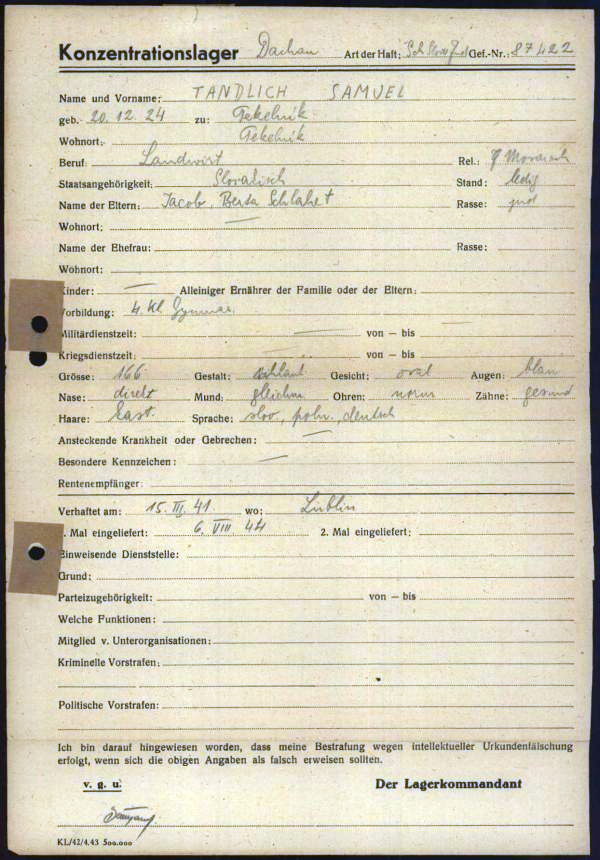 Konzentrationslager Dachau Art der Haft: Sch. Slow. Jud Gef.-Nr.: 87422
Name und Vorname: TANDLICH SAMUEL
geb. 20.12.24 zu: Tekelnik
Wohnort: Tekelnik
Beruf: Landwirt Rel.:
Staatsangehörigkeit: Slovakisch Stand: ledig
Name der Eltern: Jacob, Berta Rasse: jud
Wohnort: —
Name der Ehefrau: Rasse:
Wohnort:
Kinder: — Alleiniger Ernährer der Familie oder der Eltern:
Vorbildung: 4. Kl. Gymnas.
Militärdienstzeit: — von — bis —
Kriegsdienstzeit: — von — bis
Grösse: 166 Gestalt: schlank Gesicht: oval Augen: blau
Nase: direkt Mund: Ohren: norm Zähne: gesund
Haare: kast. Sprache: slov, poln, deutsch
Ansteckende Krankheit oder Gebrechen: —
Besondere Kennzeichen: —
Rentenempfänger:
Verhaftet am: 15. III. 41 wo: Lublin
1. Mal eingeliefert: 6. VIII 44 2. Mal eingeliefert:
Einweisende Dienststelle:
Grund:
Parteizugehörigkeit: von — bis
Welche Funktionen:
Mitglied v. Unterorganisationen:
Kriminelle Vorstrafen:
Politische Vorstrafen:
Ich bin darauf hingewiesen worden, dass meine Bestrafung wegen intellektueller Urkundenfälschung
erfolgt, wenn sich die obigen Angaben als falsch erweisen sollten.
v. g. u. Der Lagerkommandant
KL/42/4.43 500.000